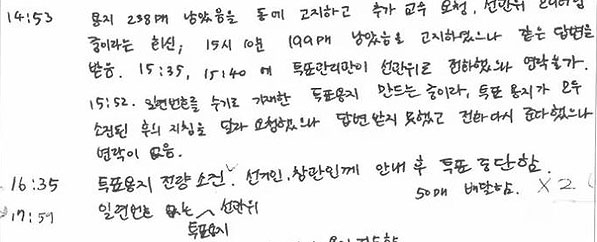 14:53 용지 238매 남았음을 통에 고지하고 추가 교부 요청, 선관위
중이라는 회신, 15시 10분 199매 남았음을 고지하였으나 같은 답변을
받음. 15:35, 15:40 에 투표관리관이 선관위로 전화했으나 연락불가.
15:52. 일련번호를 수기로 기재한 투표용지 만드는 중이라, 투표용지가 모두
소진된 후의 지침을 달라 요청했으나 답변 받지 못했고 전화 다시 준다했으나
연락이 없음.
16:35 투표용지 전량 소진. 선거인, 참관인께 안내 후 투표 중단함.
50매 배달함. X 2
17:59 일련번호 없는 선관위
투표용지